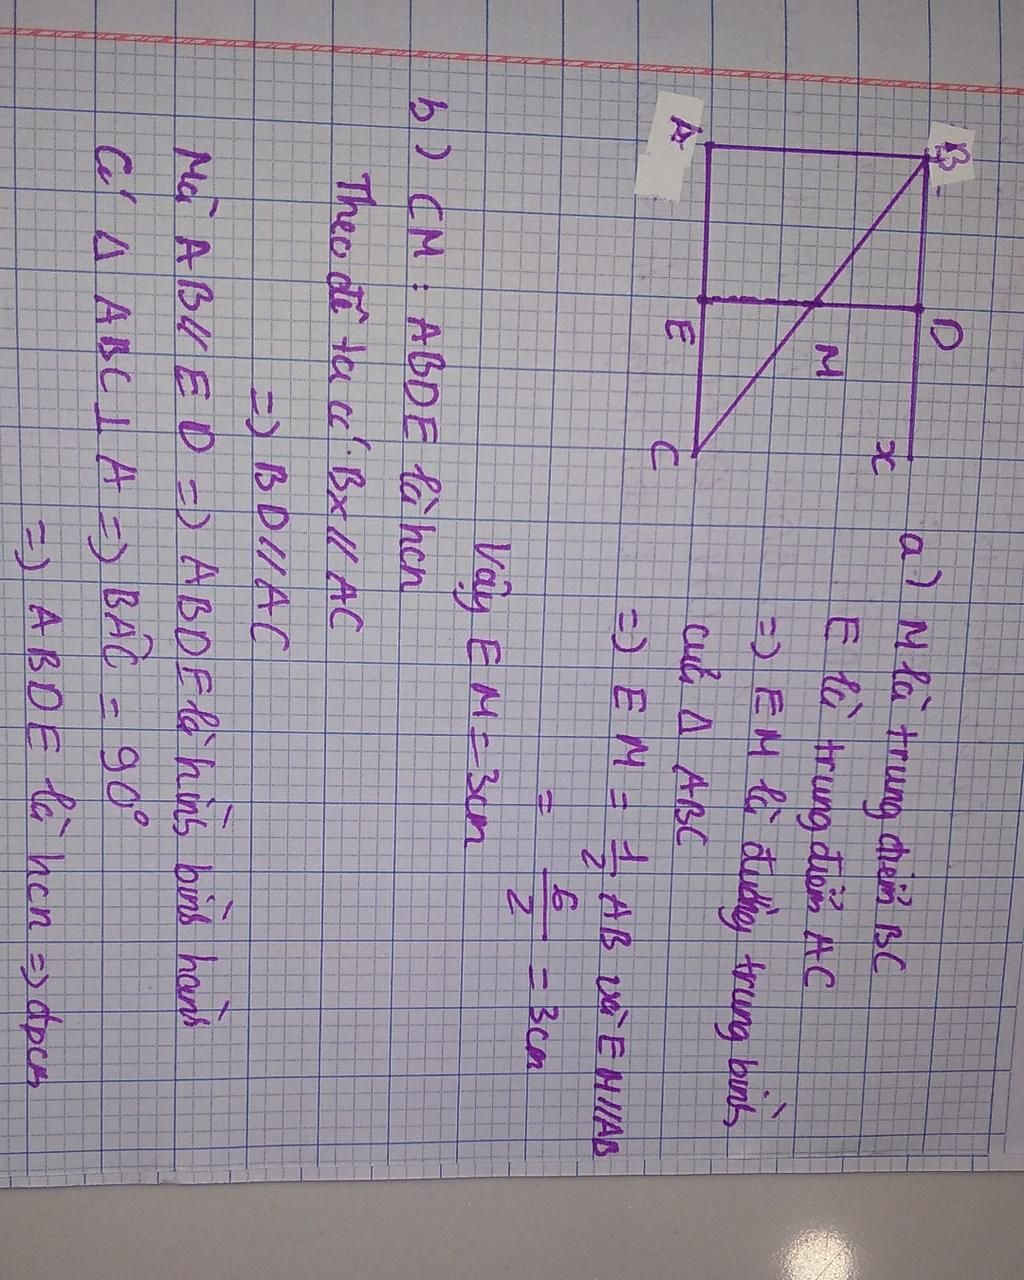 B
D
x
M
A
E
C
a) M là trung điểm BC
E là trung điểm AC
=) EM là đường trung bình
của Δ ABC
=) EM = 1/2 AB và EM//AB
= 6/2 = 3cm
Vậy EM = 3cm
b) CM : ABDE là hcn
Theo đề ta có Bx // AC
=) BD // AC
Mà AB // ED =) ABDE là hình bình hành
Có Δ ABC ⊥ A =) BÂC = 90°
=) ABDE là hcn =) đpcm